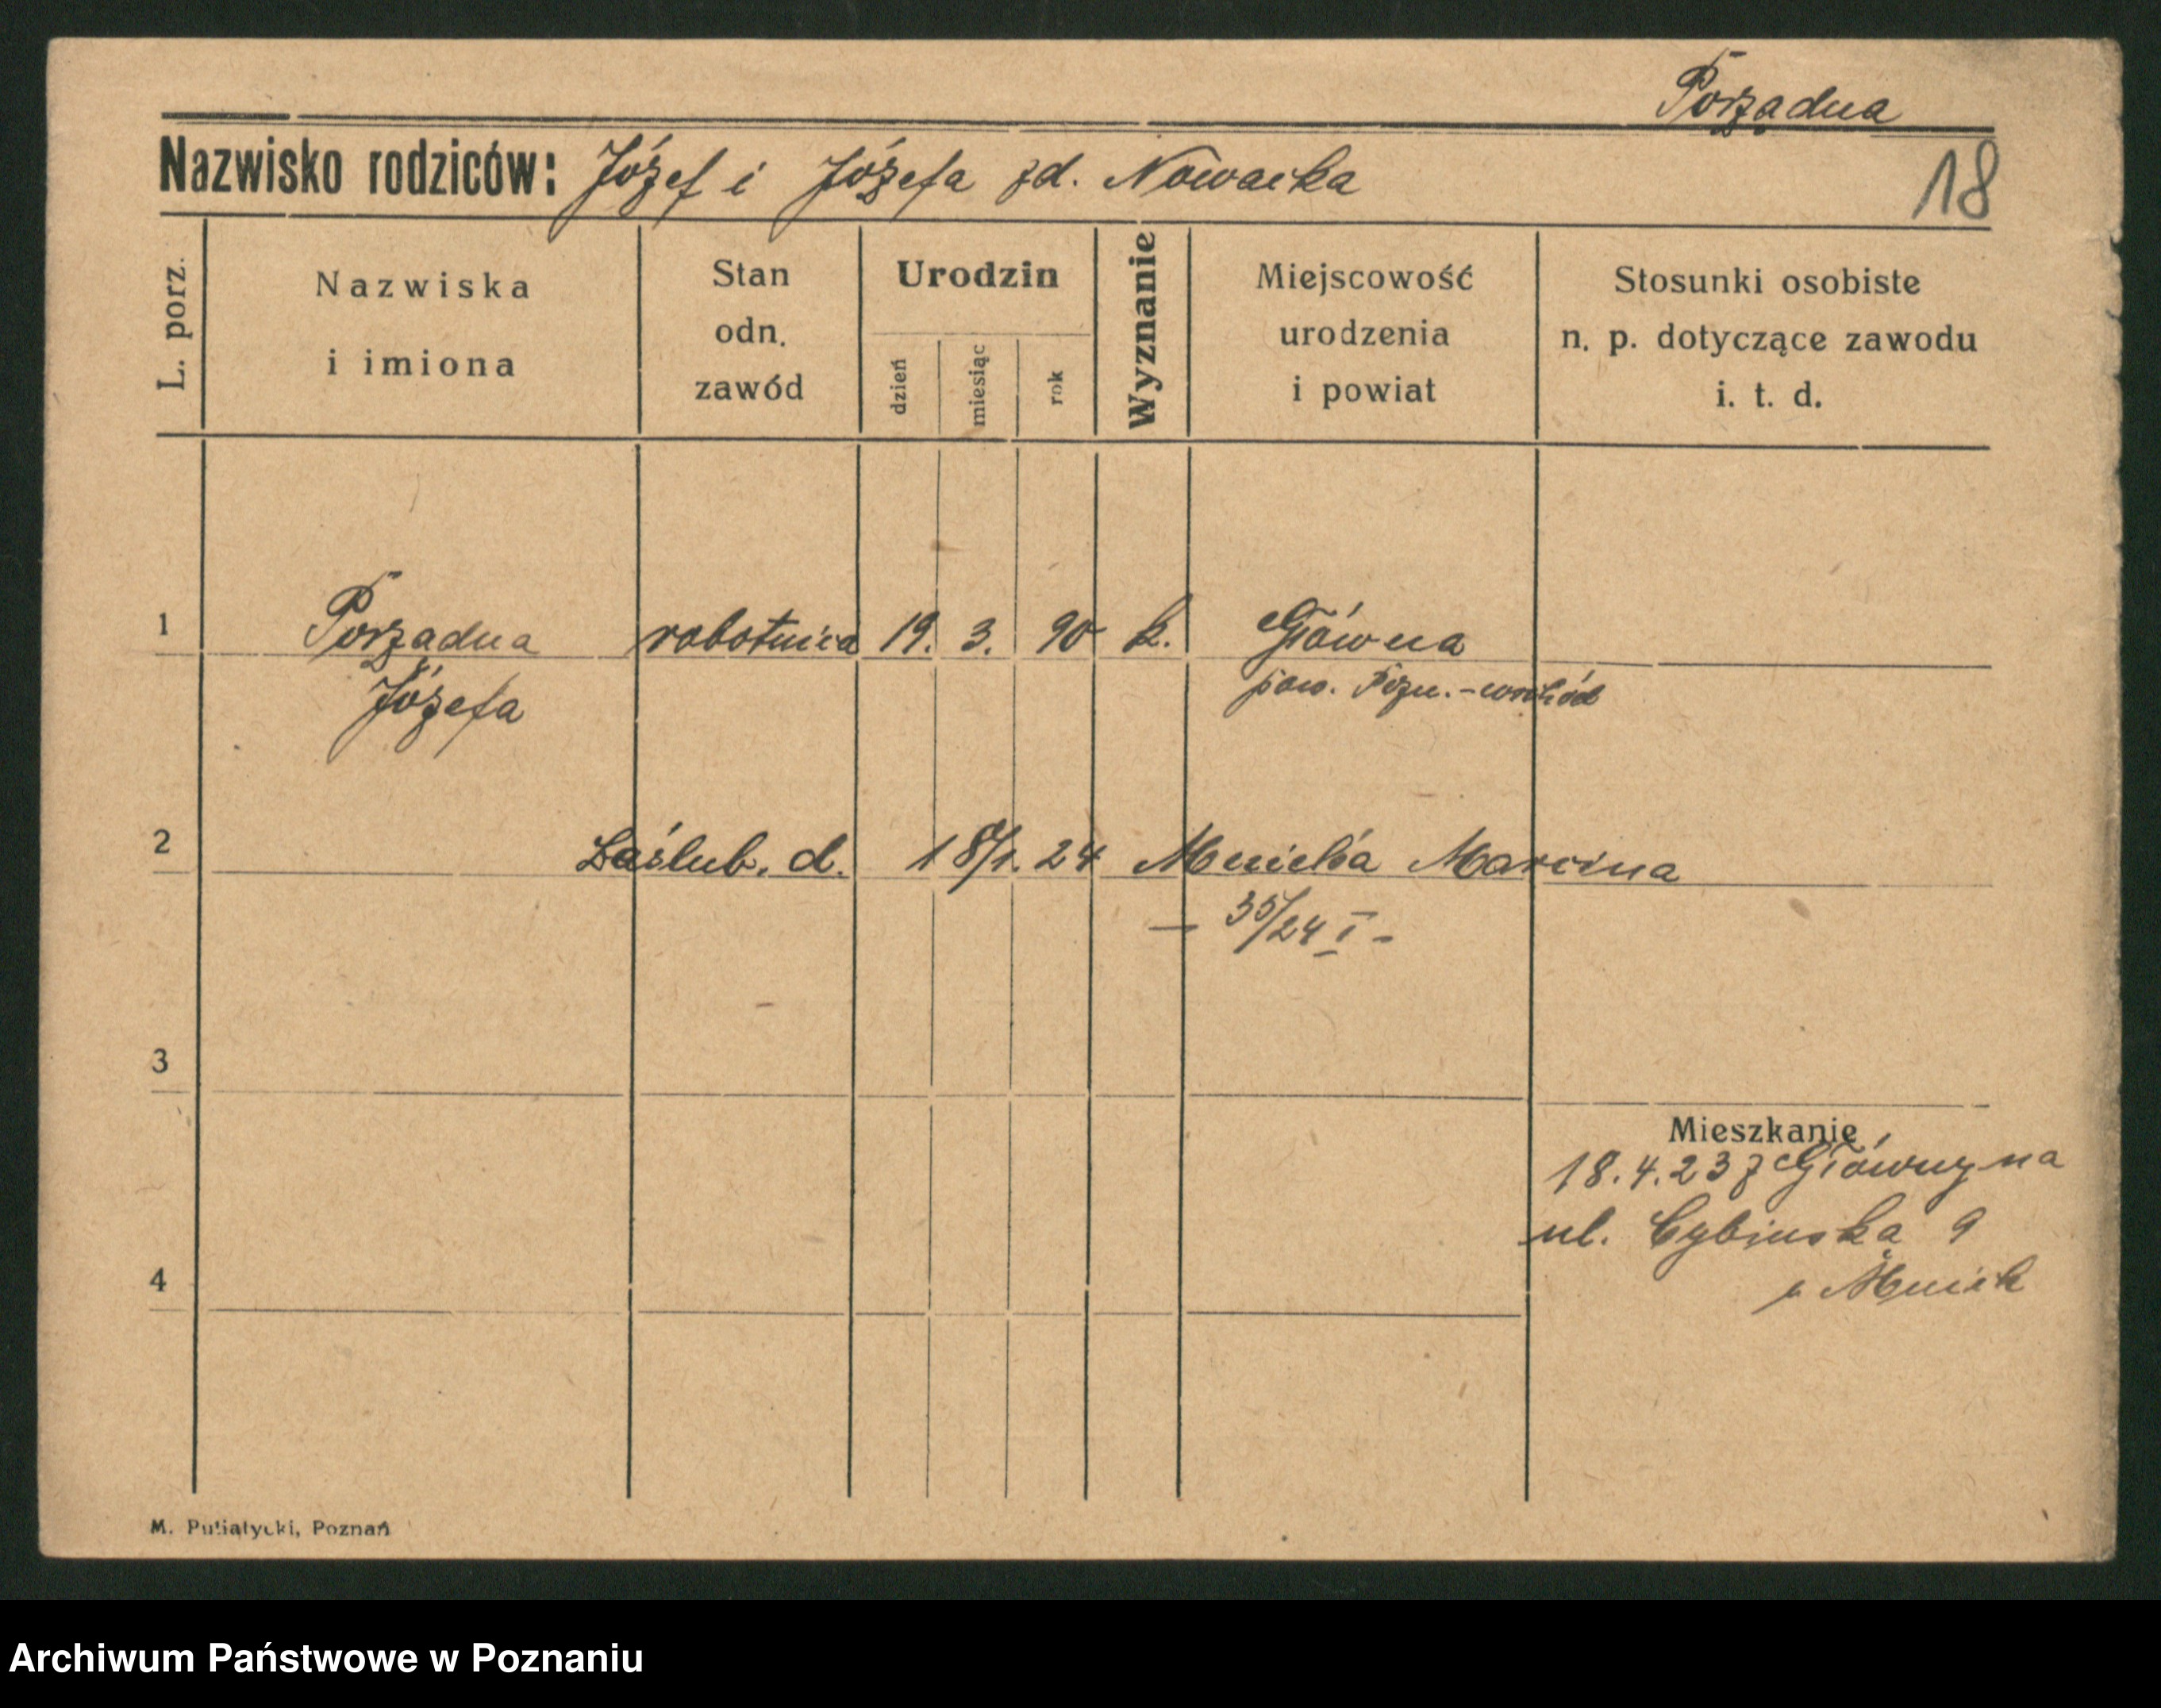 Porządna
Nazwisko rodziców: Józef i Józefa zd. Nowacka
18
L. porz.
Nazwiska
i imiona
Stan
odn.
zawód
Urodzin
dzień
miesiąc
rok
Wyznanie
Miejscowość
urodzenia
i powiat
Stosunki osobiste
n. p. dotyczące zawodu
i. t. d.
1 Porządna robotnica 19. 3. 90 k. Główna
Józefa pow. Pozn. - wschód
2 Zaślub. d. 18/1. 24 Mnicha Marcina
- 35/24 I -
3
Mieszkanie
18.4.23 z Główny na
ul. Cybinska 9
4
u Mnich
M. Putiatycki, Poznań
Archiwum Państwowe w Poznaniu